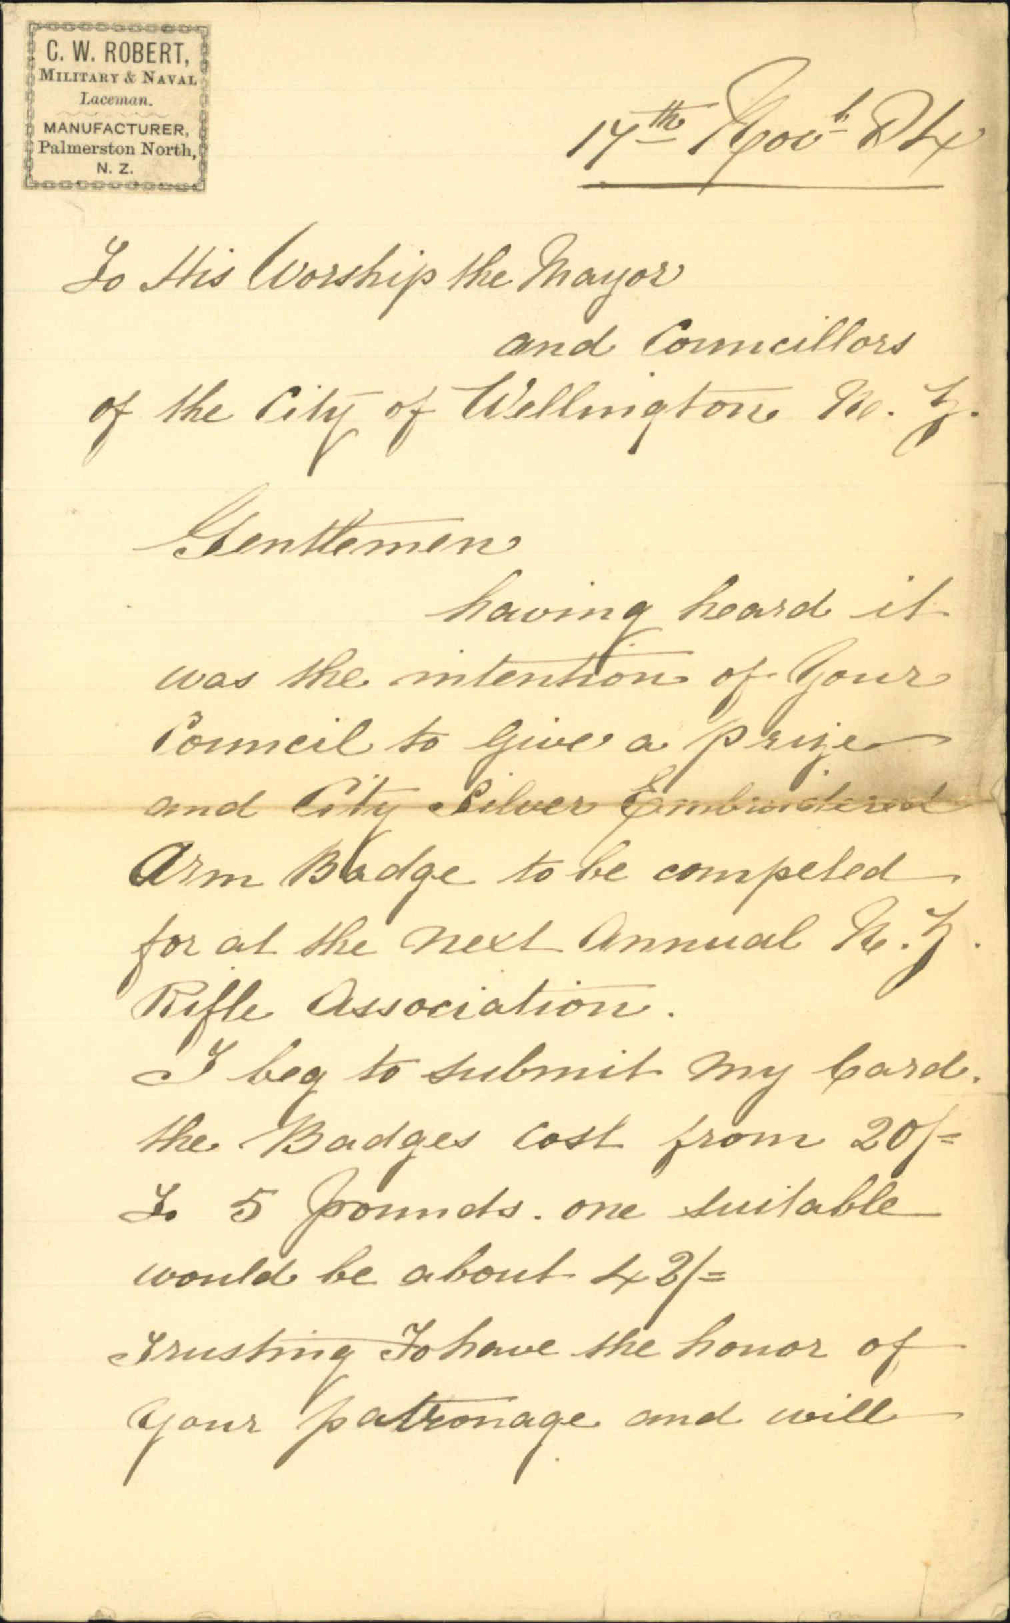 C. W. ROBERT,
MILITARY & NAVAL
Laceman.
MANUFACTURER,
Palmerston North,
N. Z.
17th Novb 84
To His Worship the Mayor
and Councillors
of the City of Wellington N. Z.
Gentlemen
having heard it
was the intention of Your
Council to Give a prize
and City Silver Embroidered
Arm Badge to be competed
for at the next Annual N. Z.
Rifle Association.
I beg to submit my Card.
the Badges cost from 20/=
To 5 pounds. one suitable
would be about 42/=
Trusting To have the honor of
Your patronage and will